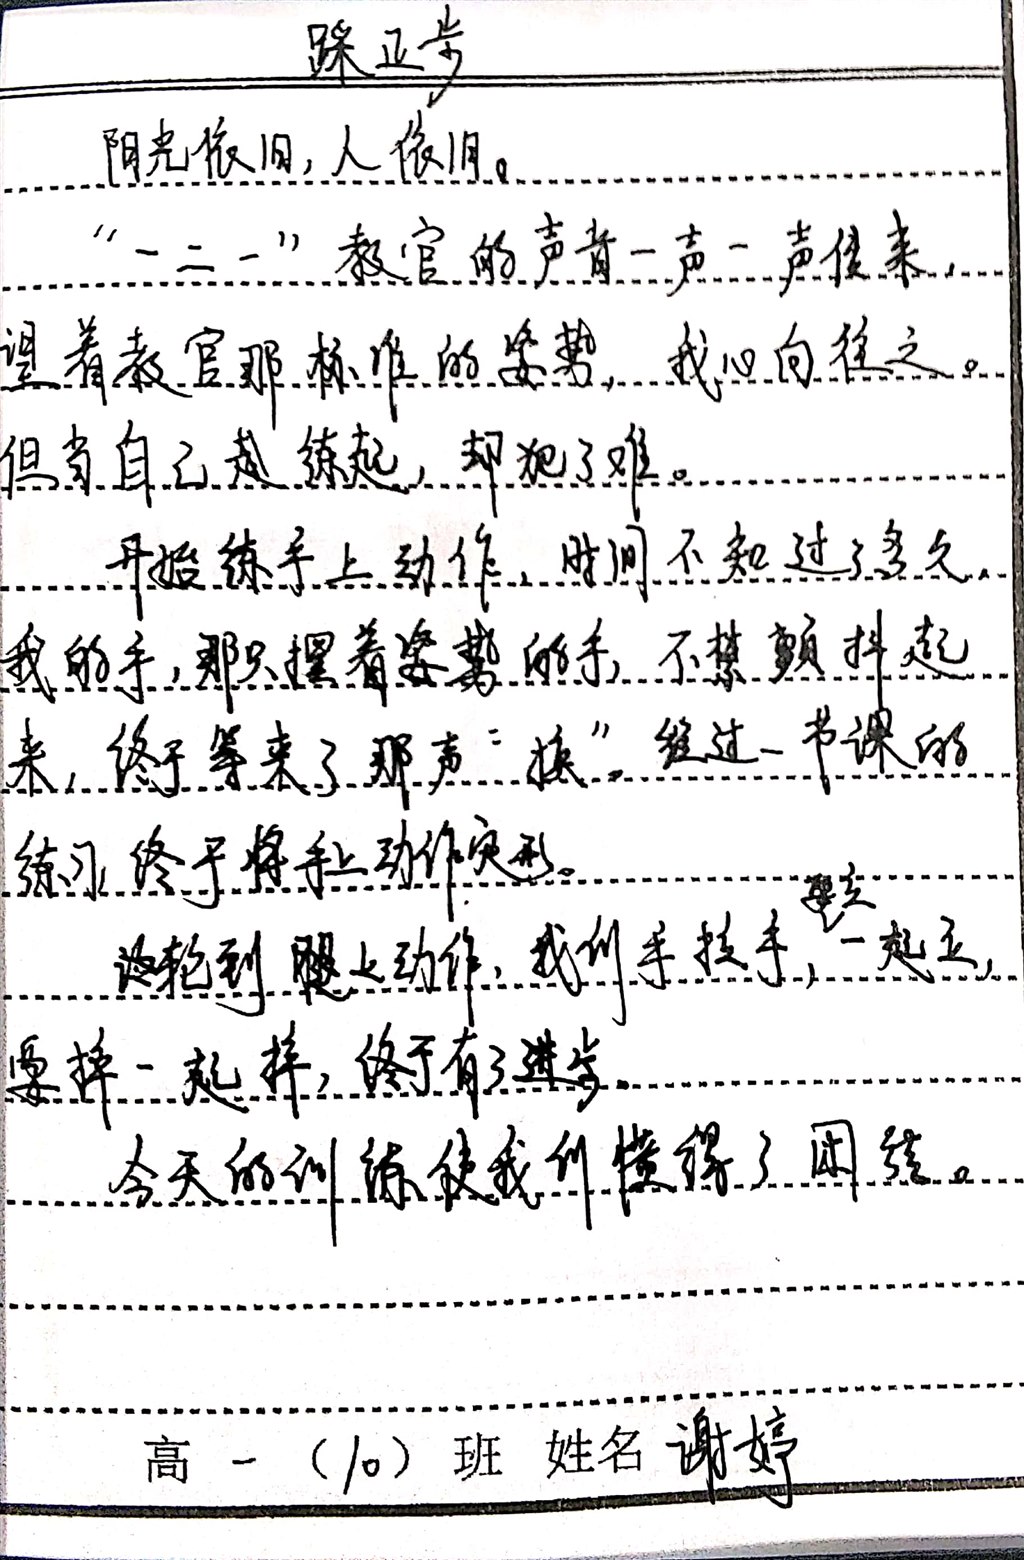 踩正步
阳光依旧，人依旧。
“一二一”教官的声音一声一声传来，
望着教官那标准的姿势，我心向往之。
但当自己走练起，却犯了难。
开始练手上动作，时间不知过了多久，
我的手，那只摆着姿势的手，不禁颤抖起
来，终于等来了那声“换”。经过一节课的
练习，终于将手上动作定形。
该轮到腿上动作，我们手扶手，要立一起立，
要摔一起摔，终于有了进步。
今天的训练使我们懂得了团结。
高一（10）班 姓名 谢婷